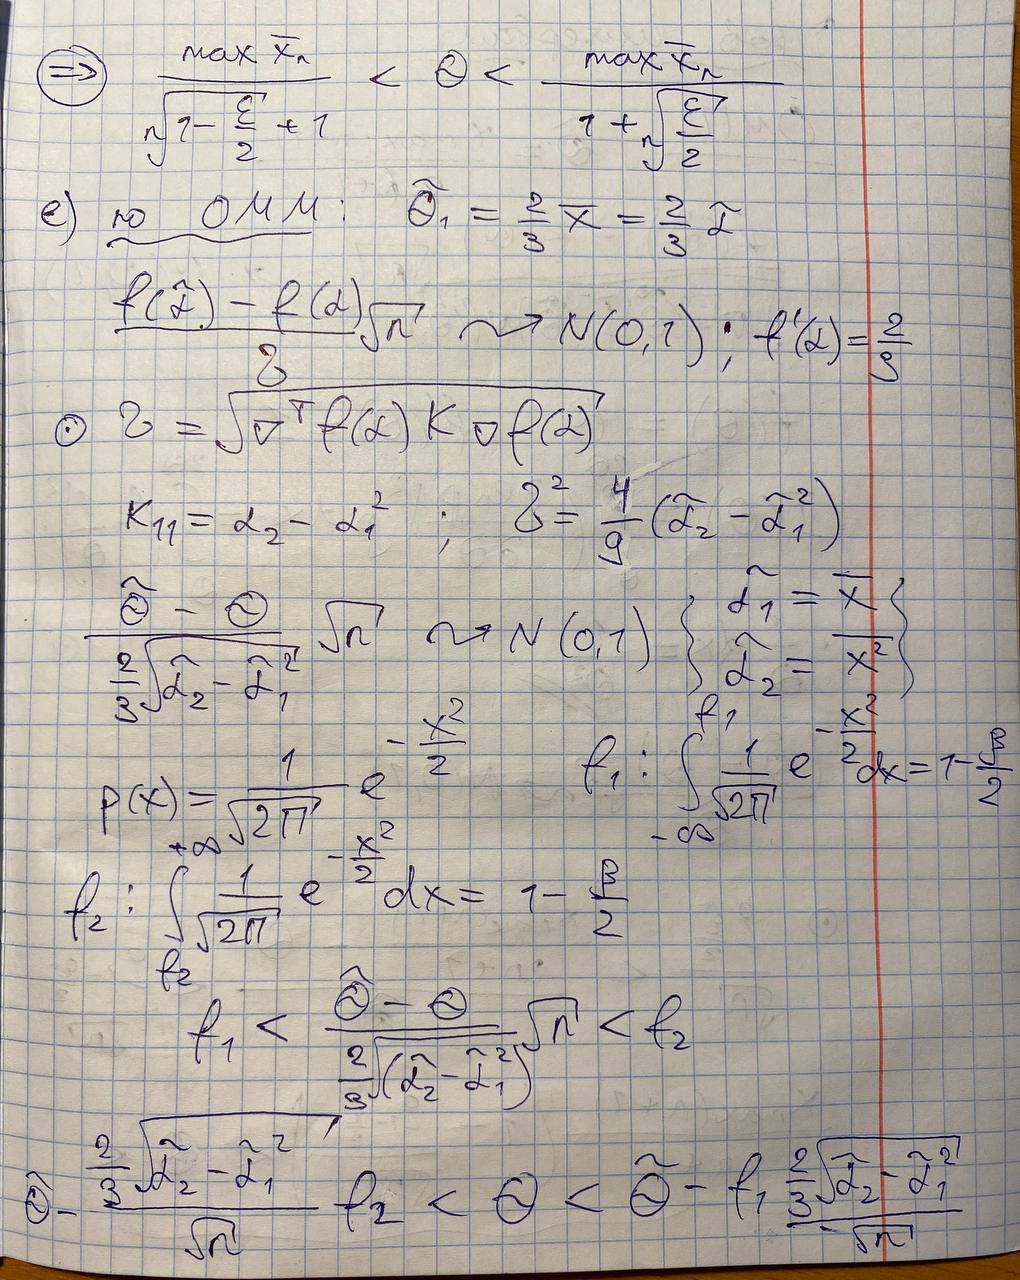 ⇒ max x̄ₙ / (ⁿ√(1 - ε/2) + 1) < Θ < max x̄ₙ / (1 + ⁿ√(ε/2))
e) по ОММ: Θ̃₁ = 2/3 x̄ = 2/3 α̃
(f(α̃) - f(α))/τ √n ⇝ N(0,1); f'(α) = 2/3
⊙ τ = √(∇ᵀf(α) K ∇f(α))
K₁₁ = α₂ - α₁²; τ² = 4/9 (α̃₂ - α̃₁²)
(Θ̃ - Θ)/(2/3 √(α̃₂ - α̃₁²)) √n ⇝ N(0,1) { α̃₁ = x̄
α̃₂ = x̄² }
p(x) = 1/√(2π) e^(-x²/2) f₁: ∫_{-∞}^{f₁} 1/√(2π) e^(-x²/2) dx = 1 - β/2
f₂: ∫_{f₂}^{+∞} 1/√(2π) e^(-x²/2) dx = 1 - β/2
f₁ < (Θ̃ - Θ)/(2/3 √(α̃₂ - α̃₁²)) √n < f₂
Θ̃ - (2/3 √(α̃₂ - α̃₁²))/√n f₂ < Θ < Θ̃ - f₁ (2/3 √(α̃₂ - α̃₁²))/√n